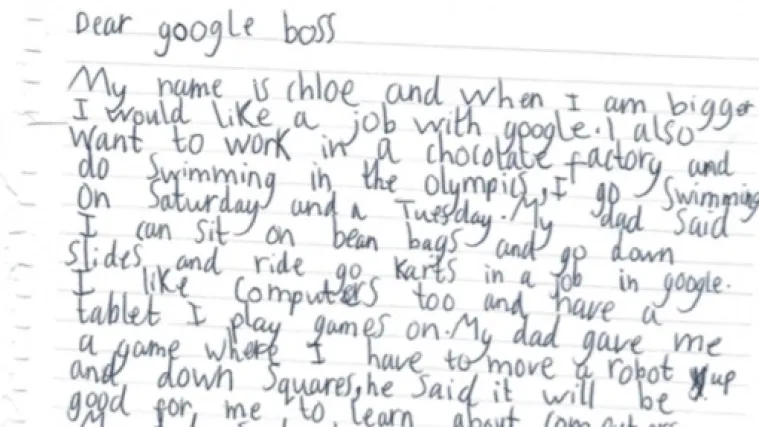 Dear google boss
My name is chloe and when I am bigger
I would like a job with google. I also
want to work in a chocolate factory and
do swimming in the olympics, I go swimming
on Saturday and a Tuesday. My dad said
I can sit on bean bags and go down
slides and ride go karts in a job in google.
I like computers too and have a
tablet I play games on. My dad gave me
a game where I have to move a robot up
and down squares, he said it will be
good for me to learn about computers